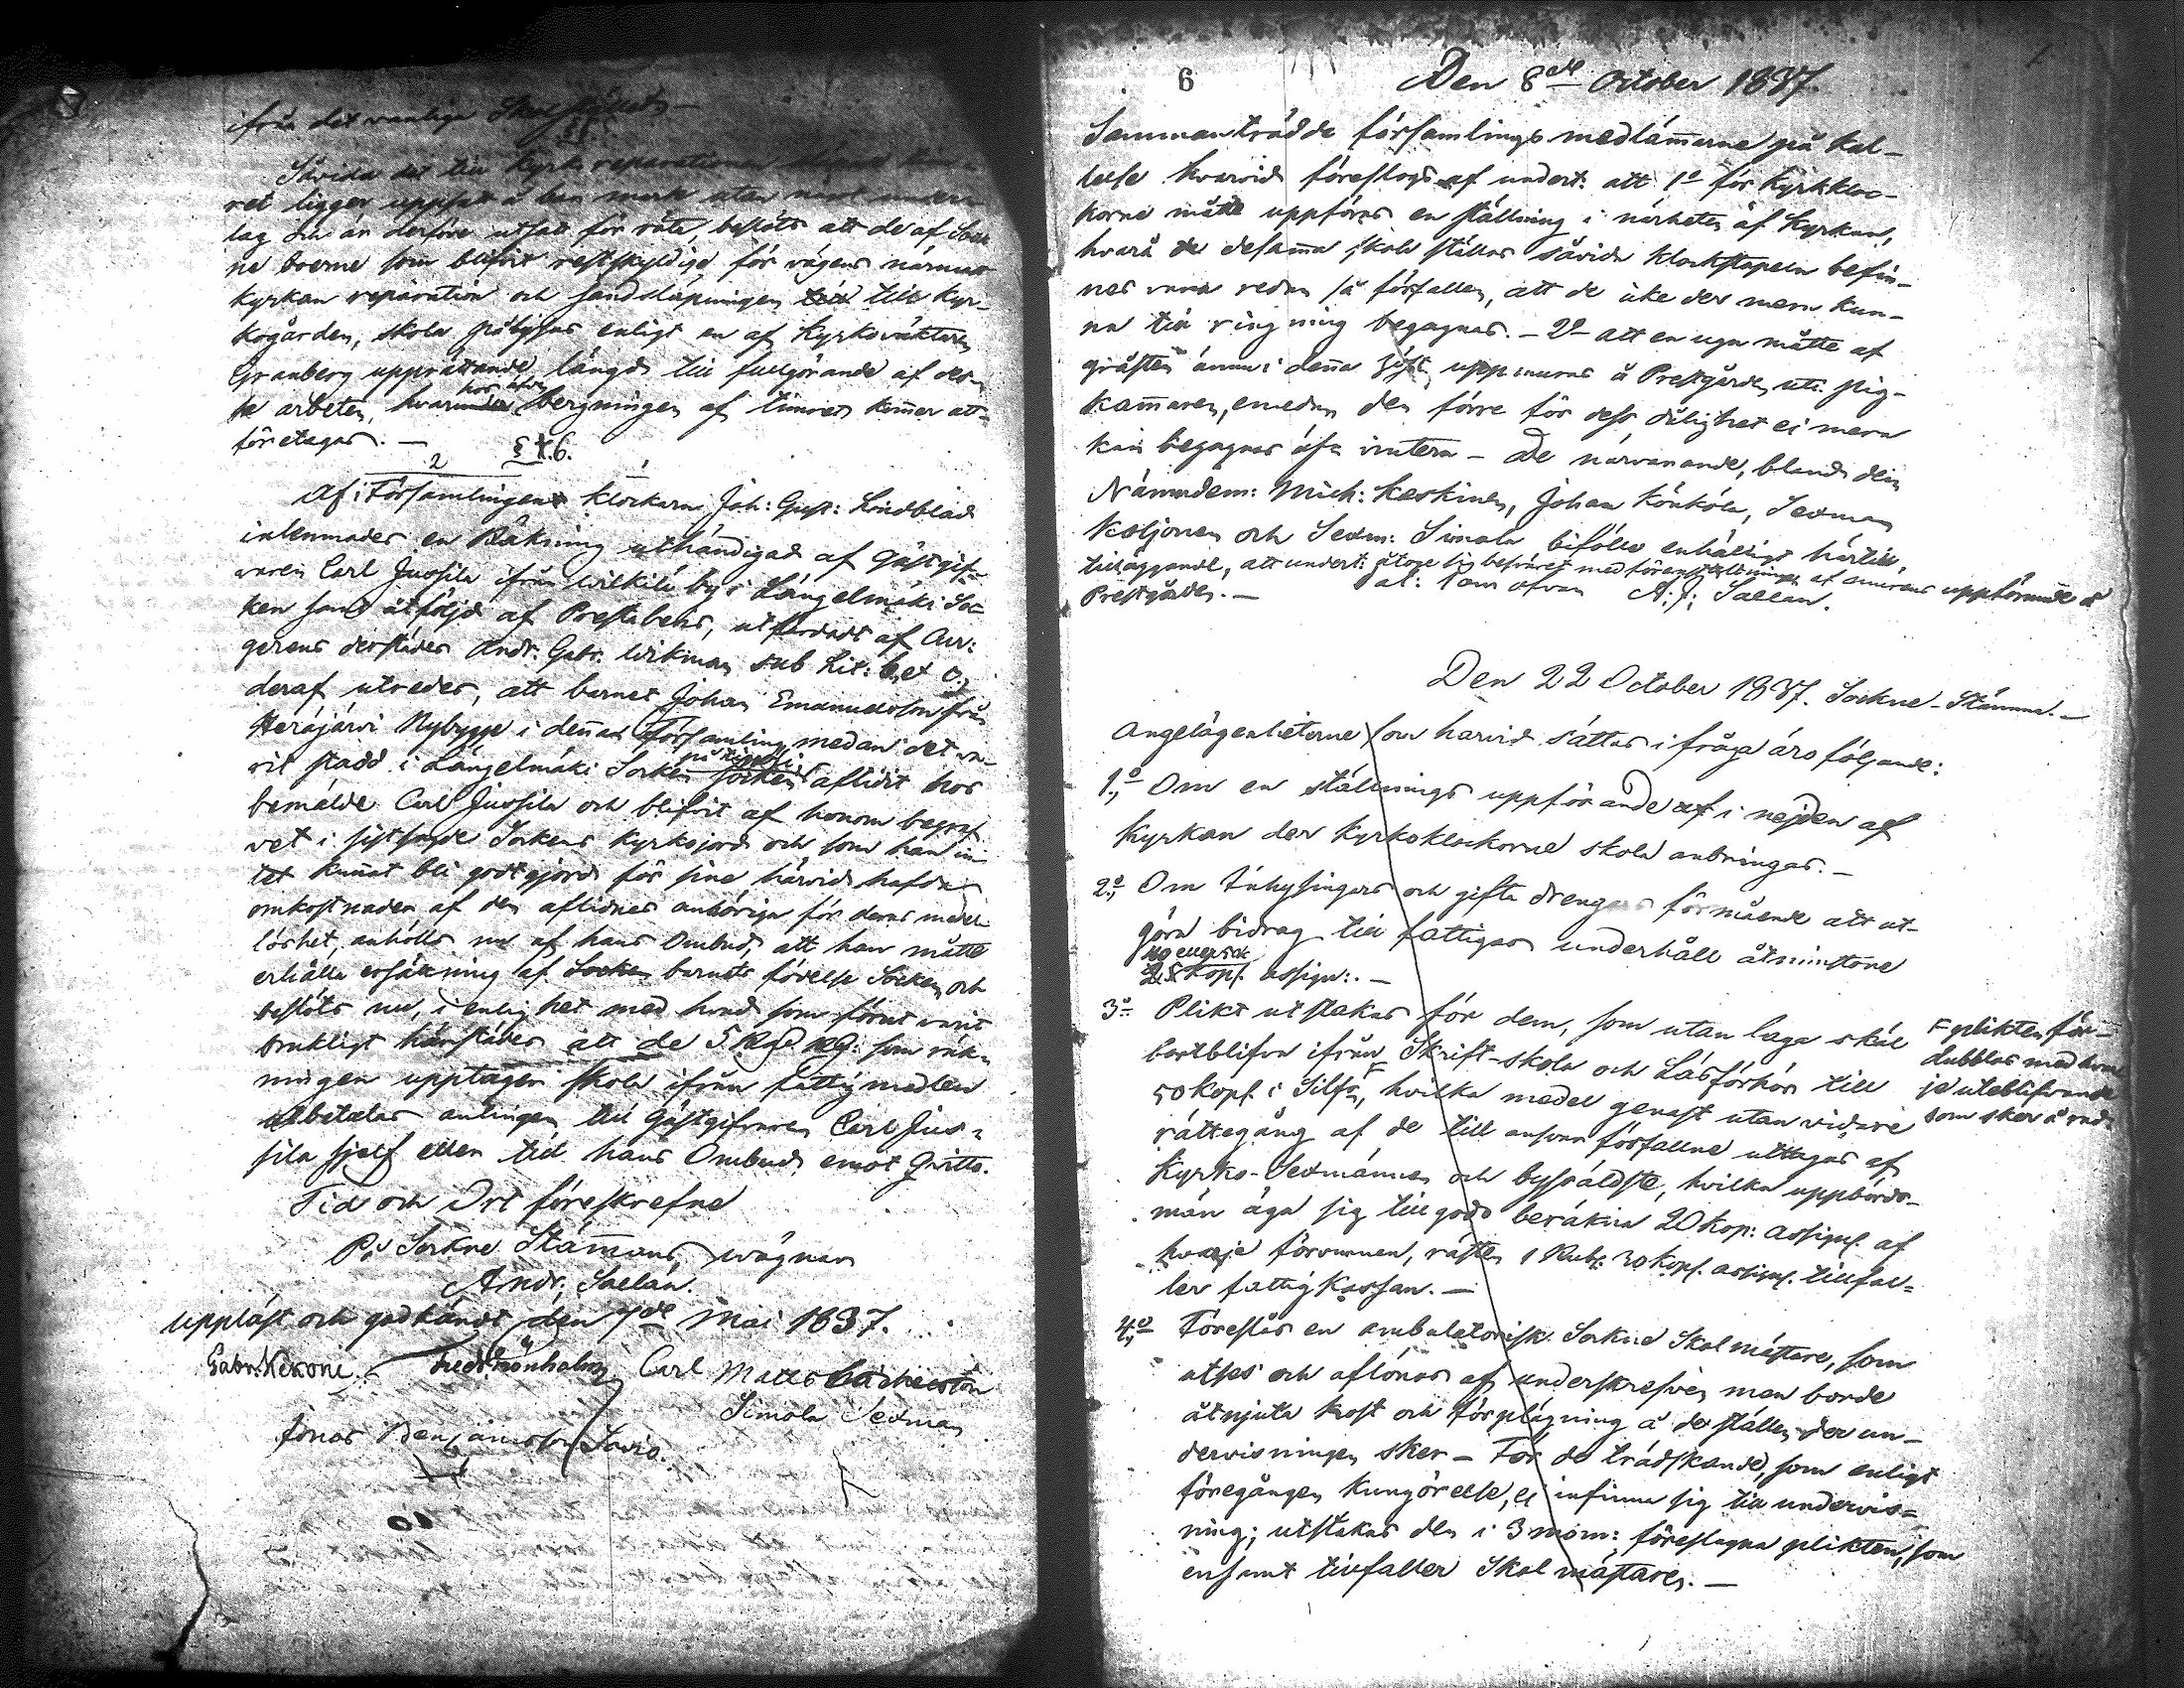 ifrån det vanlige
Såvida det till Kyrk reparationen
ret ligger uppsatt å bar mark utan
lag och är derföre utsatt för röta, beslöts att de af Sock
ne boerne som blifvit restskyldige för vägens närmast
kyrkan reparation och sandsläpningen till Kyr-
kogården, skola påbjudas enligt en af Kyrkovaktaren
Granberg upprättande längd till fullgörande af des-
se arbeten, hvarunder bergningen af timret kommer att
företagas. —
§ 6.
Af Församlingens Klockare Joh: Gust: Lindblad
inlemnades en Räkning uthändigad af Gästgif-
varen Carl Jussila ifrån Wilkilä by i Längelmäki Soc-
ken samt åtföljd af Prestebevis, utfärdadt af
gerens derstädes Andr. Gabr. Wikman sub Lit: b. et c.,
deraf utredes, att barnet Johan Emanuelsson från
Herajärvi Nybygge i denna Församling medan det va-
rit stadd i Längelmäki Socken aflidit hos
bemälde Carl Jussila och blifvit af honom begraf-
vet i sistsagde Sockens Kyrkojord och som han in-
tet kunnat bli godtgjord för sine härvid hafda
omkostnader af den aflidnes anhöriga för deras medel-
löshet, anhölls nu af hans Ombud, att han måtte
erhålla ersättning af Socken barnets födelse Socken och
beslöts nu, i enlighet med hvad som förut varit
brukligt härstädes att de 5 som räk-
ningen upptager skola ifrån fattigmedlen
utbetalas antingen till Gästgifvaren Carl Jus-
sila sjelf eller till hans Ombud emot Qvitto.
Tid och Ort föreskrefne
På Sockne Stämmans wägnar
Andr. Saelan.
Uppläst och godkändt den 7de Mai 1837.
Gabr. Kekoni. Carl Matts
Simola Sexman
Jonas Benjaminsson Savio.
6
Den 8de October 1837.
Sammanträdde församlings medlämarne på Kal-
lelse hvarvid föreslogs af undert: att 1o för Kyrkkloc-
korne måtte uppföras en ställning i närheten af Kyrkan,
hvarå de desamma skola ställas såvida Klockstapeln befin-
nes vara redan så förfallen, att de icke der mera kun-
na till ringning begagnas. — 2o att en ugn måtte af
gråsten ännu i denna höst uppmuras å Prestgården uti pig-
kammaren, emedan den förre för dess dålighet ei mera
kan begagnas öfver vintern — De närvarande, bland dem
Nämndem: Mich: Keskinen, Johan Könkölä, Sexman
Koljonen och Sexm: Simola biföllo enhälligt härtill,
tilläggande, att undert: åtoge sig besväret med föranstaltningen af murens uppförande å
Prestgården. — ut: som ofvan A: J: Saelan.
Den 22 October 1837. Sockne-Stämma. —
Angelägenheterne som härvid sättas i fråga äro följande:
1o, Om en ställnings uppförande i nejden af
Kyrkan der Kyrkoklockorne skola anbringas. —
2o, Om Inhysingars och gifta drengars förmående att ut-
göra bidrag till fattigas underhåll åtminstone
Kop. assign: —
3o Plikt utstakas för dem, som utan laga skäl
bortblifva ifrån Skrift-skola och Läsförhör till
50 Kop. i Silfver, hvilka medel genast utan vidare
rättegång af de till ansvar förfallne uttagas af
Kyrko-Sexmännen och byssäldste, hvilka uppbörds-
män äga sig tillgodo beräkna 20 Kop: assign. af
hvarje förvunnen, resten 1 Rub: 30 Kop. assign. tillfal-
ler fattigkassan. —
F plikten för-
dubblas med hvar
je uteblifvande
som sker å rad
4o, Föreslås en ambulatorisk Sockne Skolmästare, som
utses och aflönas af underskrefven men borde
åtnjuta kost och förplägning å de ställen der un-
dervisningen sker — För de trädskande, som enligt
föregången Kungörelse, ei infinna sig till undervis-
ning; utstakas den i 3 mom: föreslagna plikten, som
ensamt tillfaller Skolmästaren. —